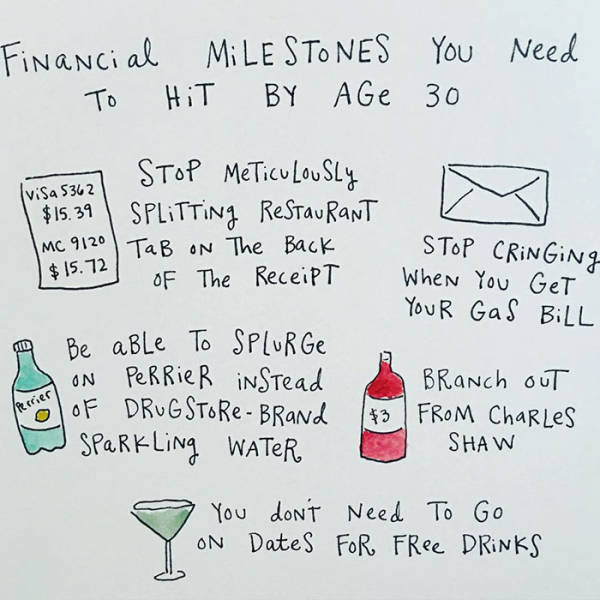 Financial MILESTONES You Need
To HiT BY AGe 30
Visa 5362
$15.39
MC 9120
$15.72
STOP MeTicuLouSLy
SPLiTTiNg ReSTauRaNT
TaB oN The Back
oF The ReceiPT
STOP CRiNGiNg
WheN You GeT
YouR GaS BiLL
Be aBLe To SPLuRGe
oN PeRRieR iNSTead
oF DRuGSToRe-BRaNd
SPaRKLiNg WaTeR
Perrier
$3
BRaNch ouT
FRoM ChaRLeS
SHAW
You doN'T Need To Go
oN DaTeS FoR FRee DRiNKS